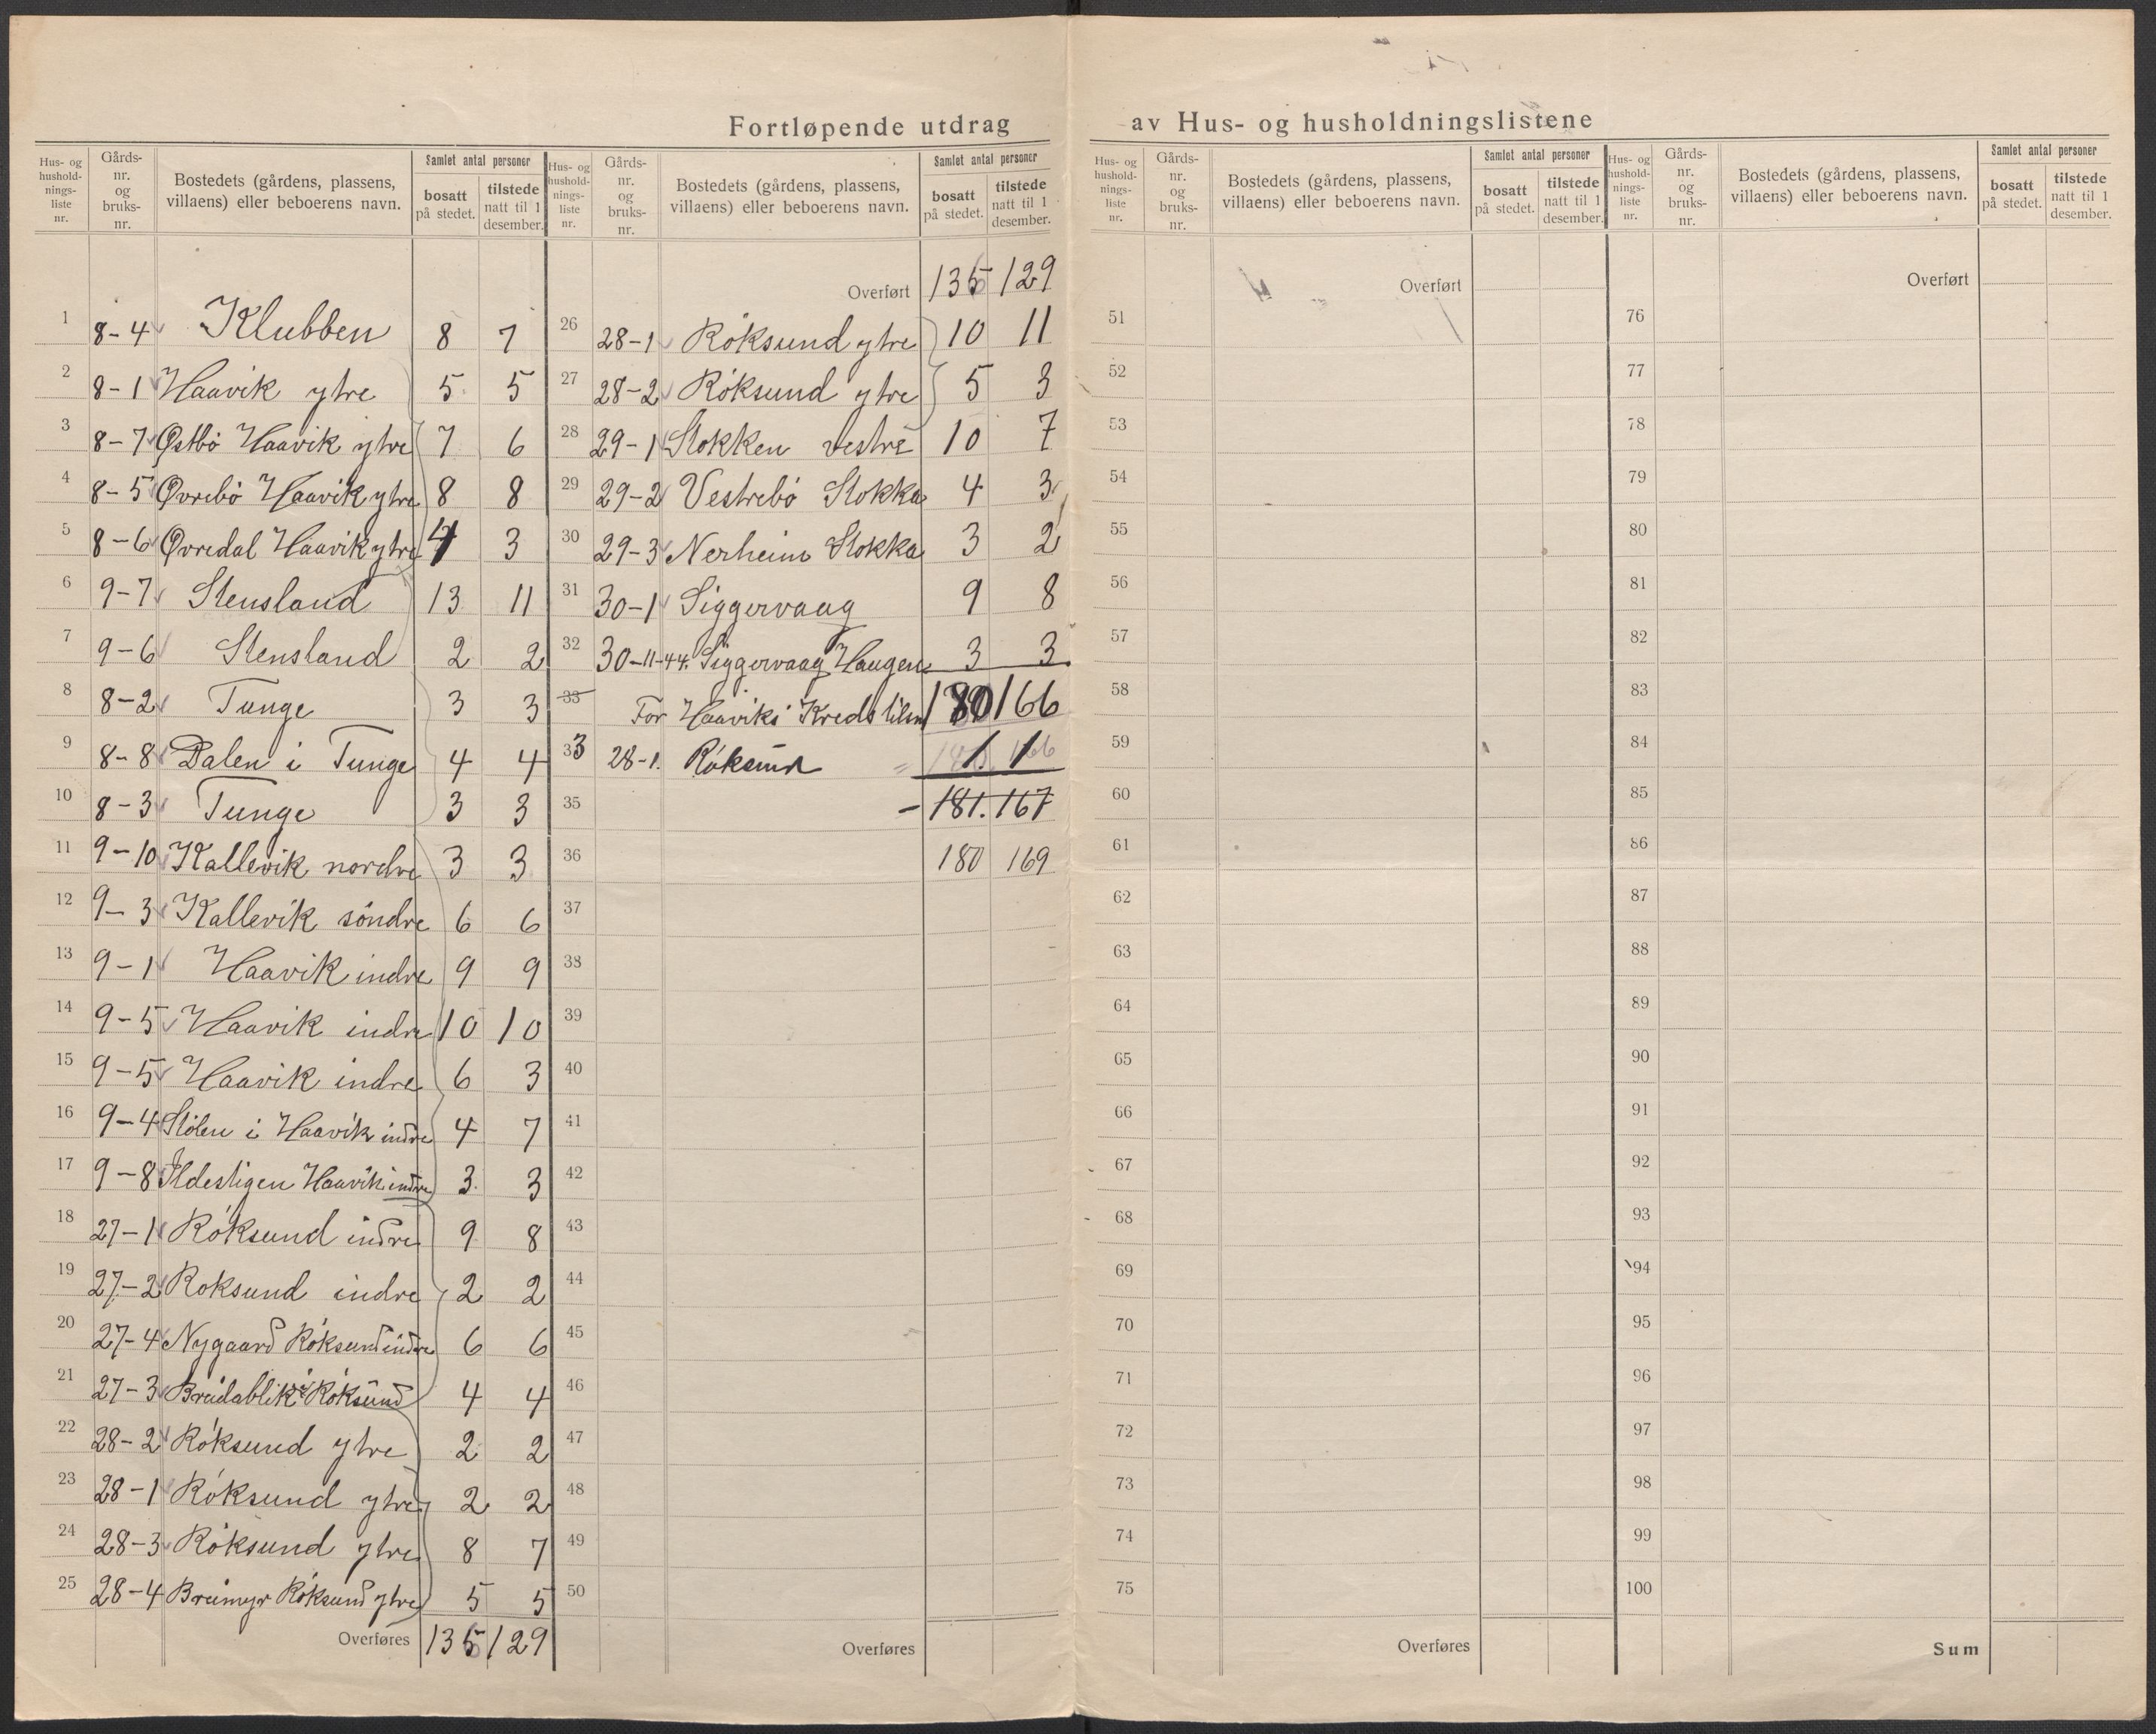 Fortløpende utdrag av Hus- og husholdningslistene
Hus- og husholdnings-liste nr. | Gårds-nr. og bruks-nr. | Bostedets (gårdens, plassens, villaens) eller beboerens navn. | Samlet antal personer | bosatt på stedet. | tilstede natt til 1 desember.
1 8-4 Klubben 8 7
2 8-1 Haavik ytre 5 5
3 8-7 Østbö Haavik ytre 7 6
4 8-5 Øvrebö Haavik ytre 8 8
5 8-6 Øvredal Haavik ytre 4 3
6 9-7 Stensland 13 11
7 9-6 Stensland 2 2
8 8-2 Tunge 3 3
9 8-8 Dalen i Tunge 4 4
10 8-3 Tunge 3 3
11 9-10 Kallevik nordre 3 3
12 9-3 Kallevik söndre 6 6
13 9-1 Haavik indre 9 9
14 9-5 Haavik indre 10 10
15 9-5 Haavik indre 6 3
16 9-4 Stölen i Haavik indre 4 7
17 9-8 Ildestigen Haavik indre 3 3
18 27-1 Röksund indre 9 8
19 27-2 Roksund indre 2 2
20 27-4 Nygaard Röksund indre 6 6
21 27-3 Breidablik i Röksund 4 4
22 28-2 Röksund ytre 2 2
23 28-1 Röksund ytre 2 2
24 28-3 Röksund ytre 8 7
25 28-4 Breimyr Röksund ytre 5 5
Overføres 135 129
Hus- og husholdnings-liste nr. | Gårds-nr. og bruks-nr. | Bostedets (gårdens, plassens, villaens) eller beboerens navn. | Samlet antal personer | bosatt på stedet. | tilstede natt til 1 desember.
Overført 135 129
26 28-1 Röksund ytre 10 11
27 28-2 Röksund ytre 5 3
28 29-1 Stokken vestre 10 7
29 29-2 Vestrebö Stokka 4 3
30 29-3 Nerheim Stokka 3 2
31 30-1 Siggervaag 9 8
32 30-11-44. Siggervaag Haugen 3 3
33 For Haaviks Kreds tilsm 180 166
33 28-1. Röksund 1 1
35 181. 167
36 180 169
37
38
39
40
41
42
43
44
45
46
47
48
49
50
Overføres
Hus- og husholdnings-liste nr. | Gårds-nr. og bruks-nr. | Bostedets (gårdens, plassens, villaens) eller beboerens navn. | Samlet antal personer | bosatt på stedet. | tilstede natt til 1 desember.
Overført
51
52
53
54
55
56
57
58
59
60
61
62
63
64
65
66
67
68
69
70
71
72
73
74
75
Overføres
Hus- og husholdnings-liste nr. | Gårds-nr. og bruks-nr. | Bostedets (gårdens, plassens, villaens) eller beboerens navn. | Samlet antal personer | bosatt på stedet. | tilstede natt til 1 desember.
Overført
76
77
78
79
80
81
82
83
84
85
86
87
88
89
90
91
92
93
94
95
96
97
98
99
100
Sum